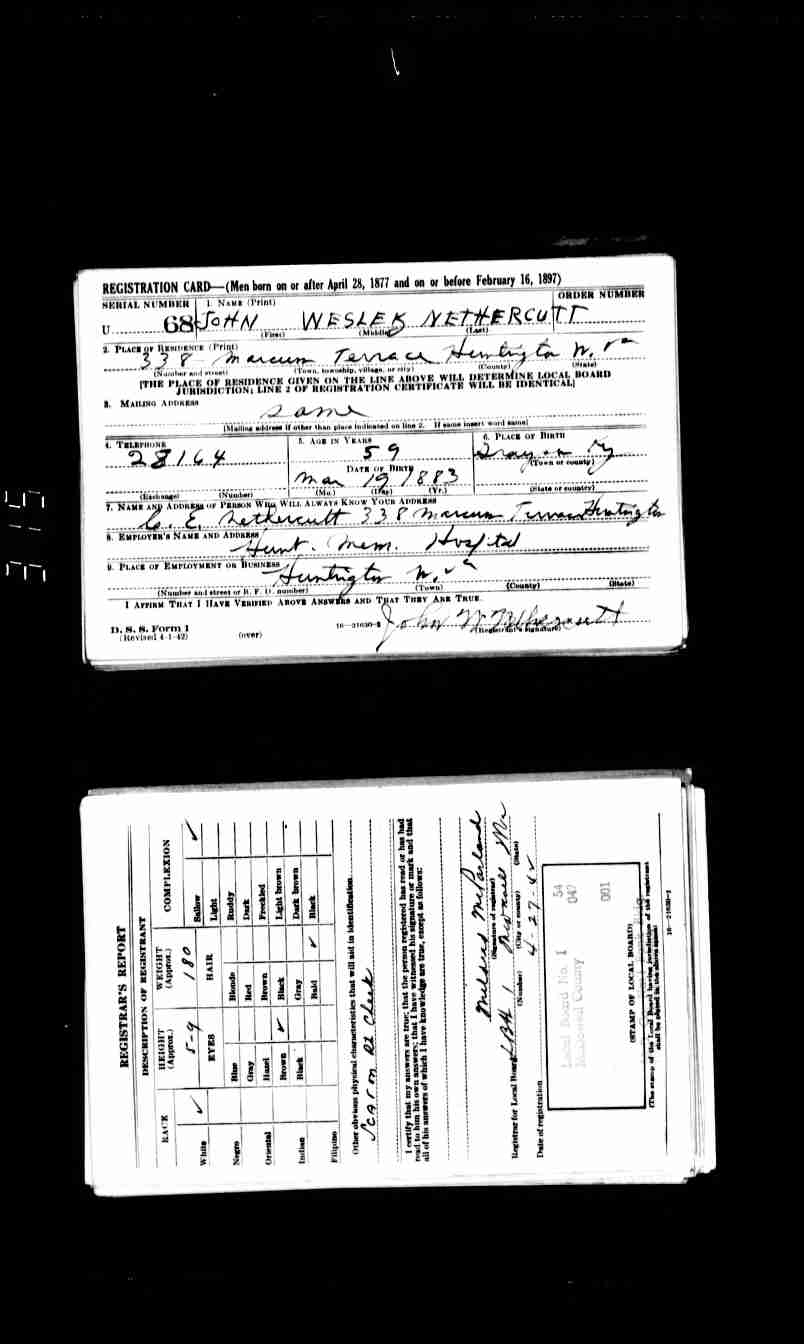 REGISTRATION CARD—(Men born on or after April 28, 1877 and on or before February 16, 1897)
SERIAL NUMBER 1. NAME (Print) ORDER NUMBER
U 68 JOHN WESLEY NETHERCUTT
(First) (Middle) (Last)
2. PLACE OF RESIDENCE (Print)
338 Marcum Terrace Huntington W. Va
(Number and street) (Town, township, village, or city) (County) (State)
[THE PLACE OF RESIDENCE GIVEN ON THE LINE ABOVE WILL DETERMINE LOCAL BOARD
JURISDICTION; LINE 2 OF REGISTRATION CERTIFICATE WILL BE IDENTICAL]
3. MAILING ADDRESS
Same
[Mailing address if other than place indicated on line 2. If same insert word same]
4. TELEPHONE 5. AGE IN YEARS 6. PLACE OF BIRTH
28164 59 Grayson Ky
(Town or county)
DATE OF BIRTH
Mar 19 1883
(Exchange) (Number) (Mo.) (Day) (Yr.) (State or country)
7. NAME AND ADDRESS OF PERSON WHO WILL ALWAYS KNOW YOUR ADDRESS
C. E. Nethercutt 338 Marcum Terrace Huntington
8. EMPLOYER'S NAME AND ADDRESS
Hunt. Mem. Hospital
9. PLACE OF EMPLOYMENT OR BUSINESS
Huntington W. Va
(Number and street or R. F. D. number) (Town) (County) (State)
I AFFIRM THAT I HAVE VERIFIED ABOVE ANSWERS AND THAT THEY ARE TRUE.
D. S. S. Form 1
(Revised 4-1-42) (over) 16—21630-2 John W Nethercutt
(Registrant's signature)
REGISTRAR'S REPORT
DESCRIPTION OF REGISTRANT
RACE HEIGHT (Approx.) WEIGHT (Approx.) COMPLEXION
5-9 180
White ✓ EYES HAIR Sallow ✓
Light
Negro Blue Blonde Ruddy
Gray Red Dark
Oriental Hazel Brown Freckled
Brown ✓ Black Light brown
Indian Black Gray Dark brown
Bald ✓ Black
Filipino
Other obvious physical characteristics that will aid in identification
Scar on Rt Cheek
I certify that my answers are true; that the person registered has read or has had
read to him his own answers; that I have witnessed his signature or mark and that
all of his answers of which I have knowledge are true, except as follows:
Mildred McFarland
(Signature of registrar)
Registrar for Local Board LBH 1
(Number) (City or county) (State)
Date of registration 4-27-42
Local Board No. 1 54
County 047
001
(STAMP OF LOCAL BOARD)
(The stamp of the Local Board having jurisdiction of the registrant
shall be placed in the above space)
16—21630-1